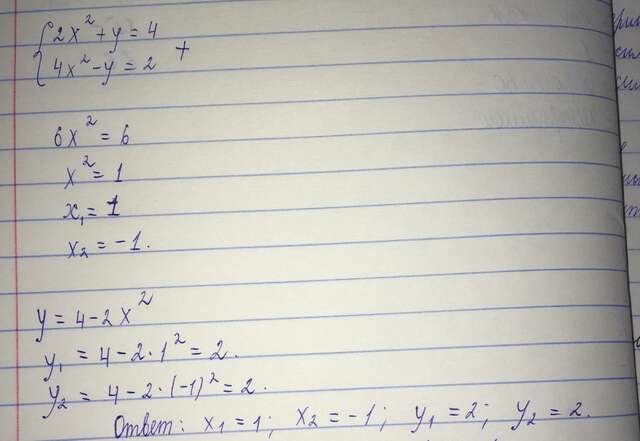 {2x² + y = 4
4x² - y = 2 +
6x² = 6
x² = 1
x₁ = 1
x₂ = -1.
y = 4 - 2x²
y₁ = 4 - 2 · 1² = 2.
y₂ = 4 - 2 · (-1)² = 2.
Ответ: x₁ = 1; x₂ = -1; y₁ = 2; y₂ = 2.